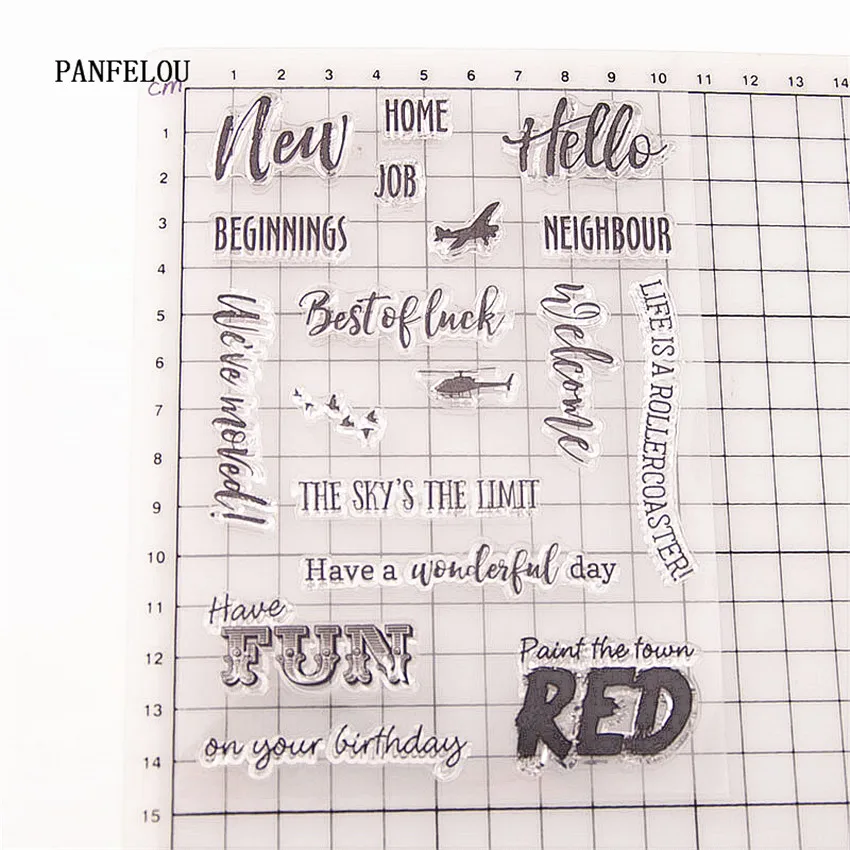 PANFELOU
cm
1 2 3 4 5 6 7 8 9 10 11 12 13 14
1
2
3
4
5
6
7
8
9
10
11
12
13
14
15
New
HOME
Hello
JOB
BEGINNINGS
NEIGHBOUR
We've moved!
Best of luck
Welcome
LIFE IS A ROLLERCOASTER!
THE SKY'S THE LIMIT
Have a wonderful day
Have
FUN
on your birthday
Paint the town
RED